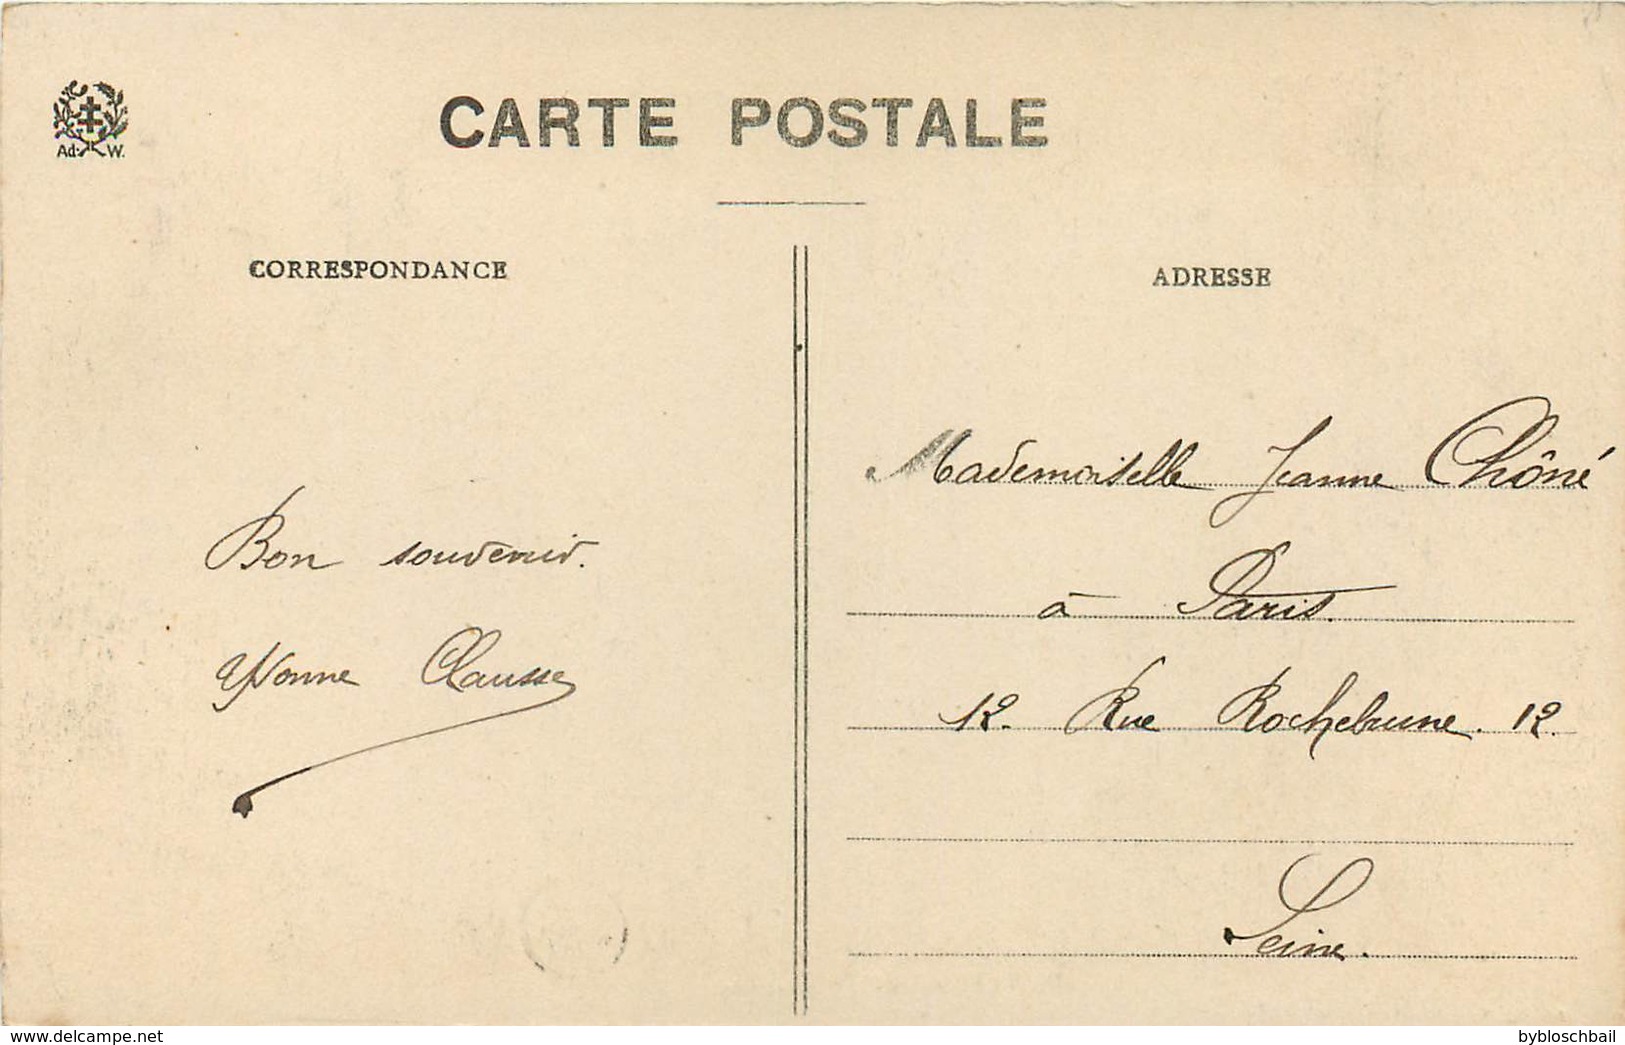 CARTE POSTALE
Ad. W.
CORRESPONDANCE
ADRESSE
Bon souvenir.
Yvonne Clausse
Mademoiselle Jeanne Chôné
à Paris.
12. Rue Rochebrune. 12.
Seine.
www.delcampe.net
bybloschbail